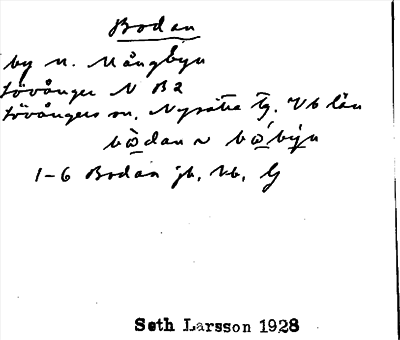 Bodan
by n. Mångbyn
Lövånger N B2
Lövångers sn, Nysätra tg. Vb län
bòdan ~ bóbýn
1-6 Bodan jb, Vb, G
Seth Larsson 1928